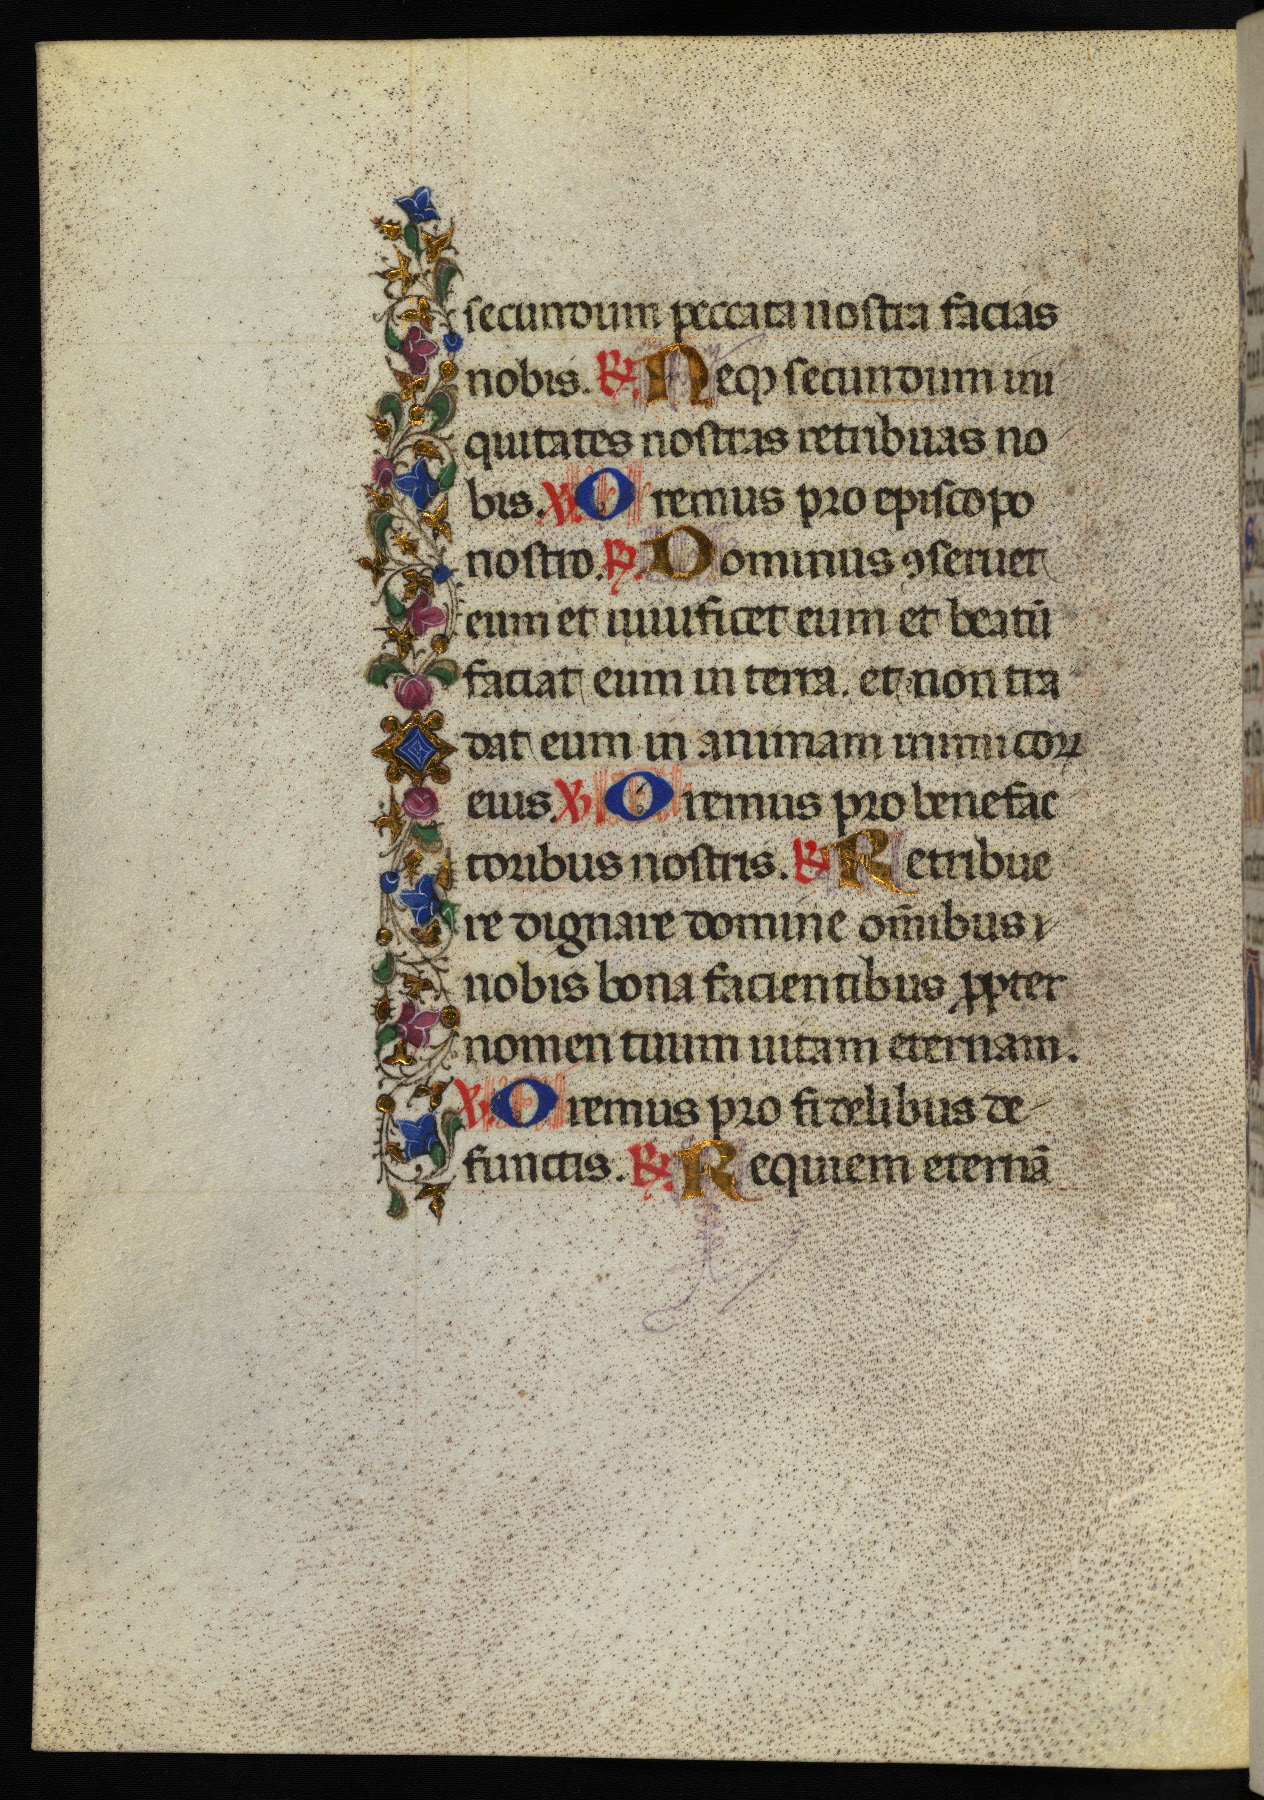 secundum peccata nostra facias
nobis. ℟. Neqȝ secundum ini
quitates nostras retribuas no
bis. ℣. Oremus pro episcopo
nostro. ℟. Dominus ꝯseruet
eum et uiuificet eum et beatū
faciat eum in terra. et non tra
dat eum in animam inimicoꝝ
eius. ℣. Oremus pro benefac
toribus nostris. ℟. Retribue
re dignare domine om̄ibus
nobis bona facientibus ꝓpter
nomen tuum uitam eternam.
℣. Oremus pro fidelibus de
functis. ℟. Requiem eternā